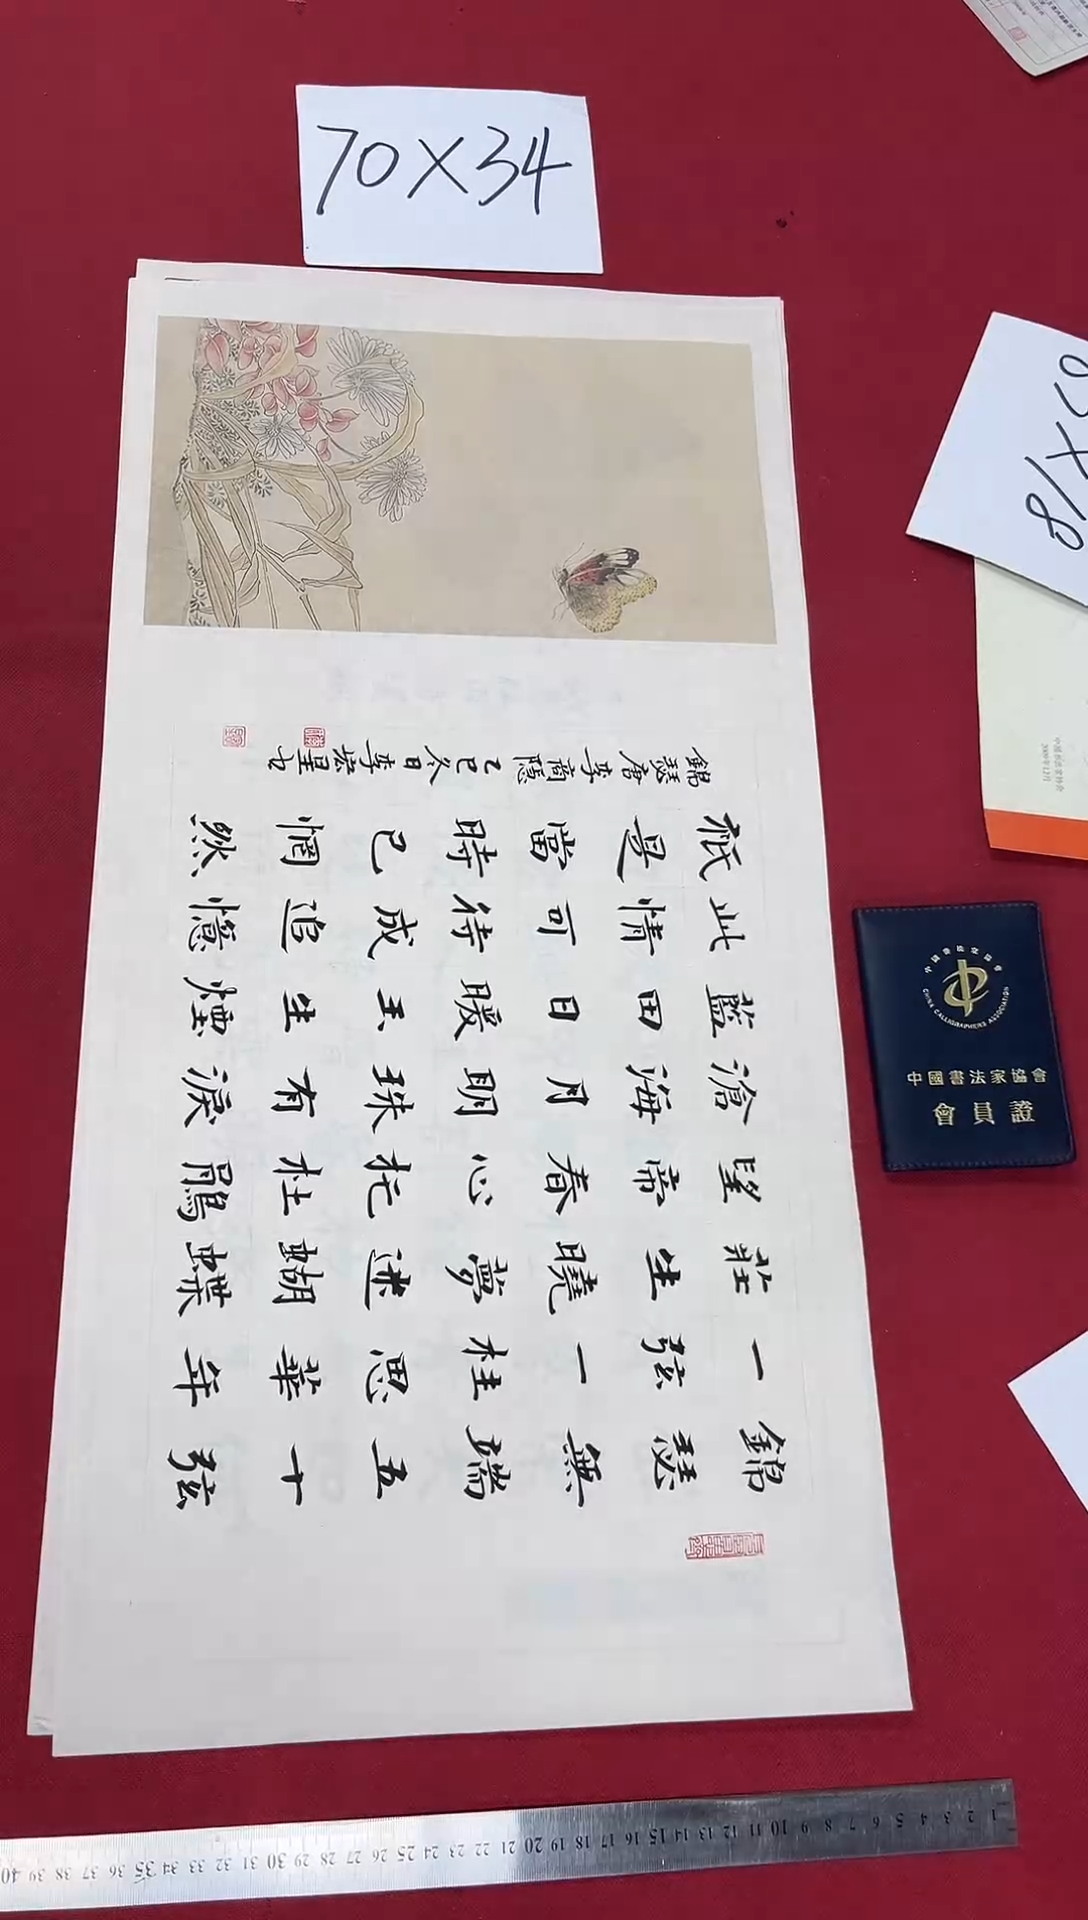 70×34
錦瑟無端五十弦
一弦一柱思華年
莊生曉夢迷蝴蝶
望帝春心托杜鵑
滄海月明珠有淚
藍田日暖玉生煙
此情可待成追憶
祇是當時已惘然
錦瑟唐李商隱乙巳冬日李宏星书
中國書法家協會
CHINA CALLIGRAPHERS ASSOCIATION
中國書法家協會
會員證
中国书法家协会
2009年12月
1 2 3 4 5 6 7 8 9 10 11 12 13 14 15 16 17 18 19 20 21 22 23 24 25 26 27 28 29 30 31 32 33 34 35 36 37 38 39 40